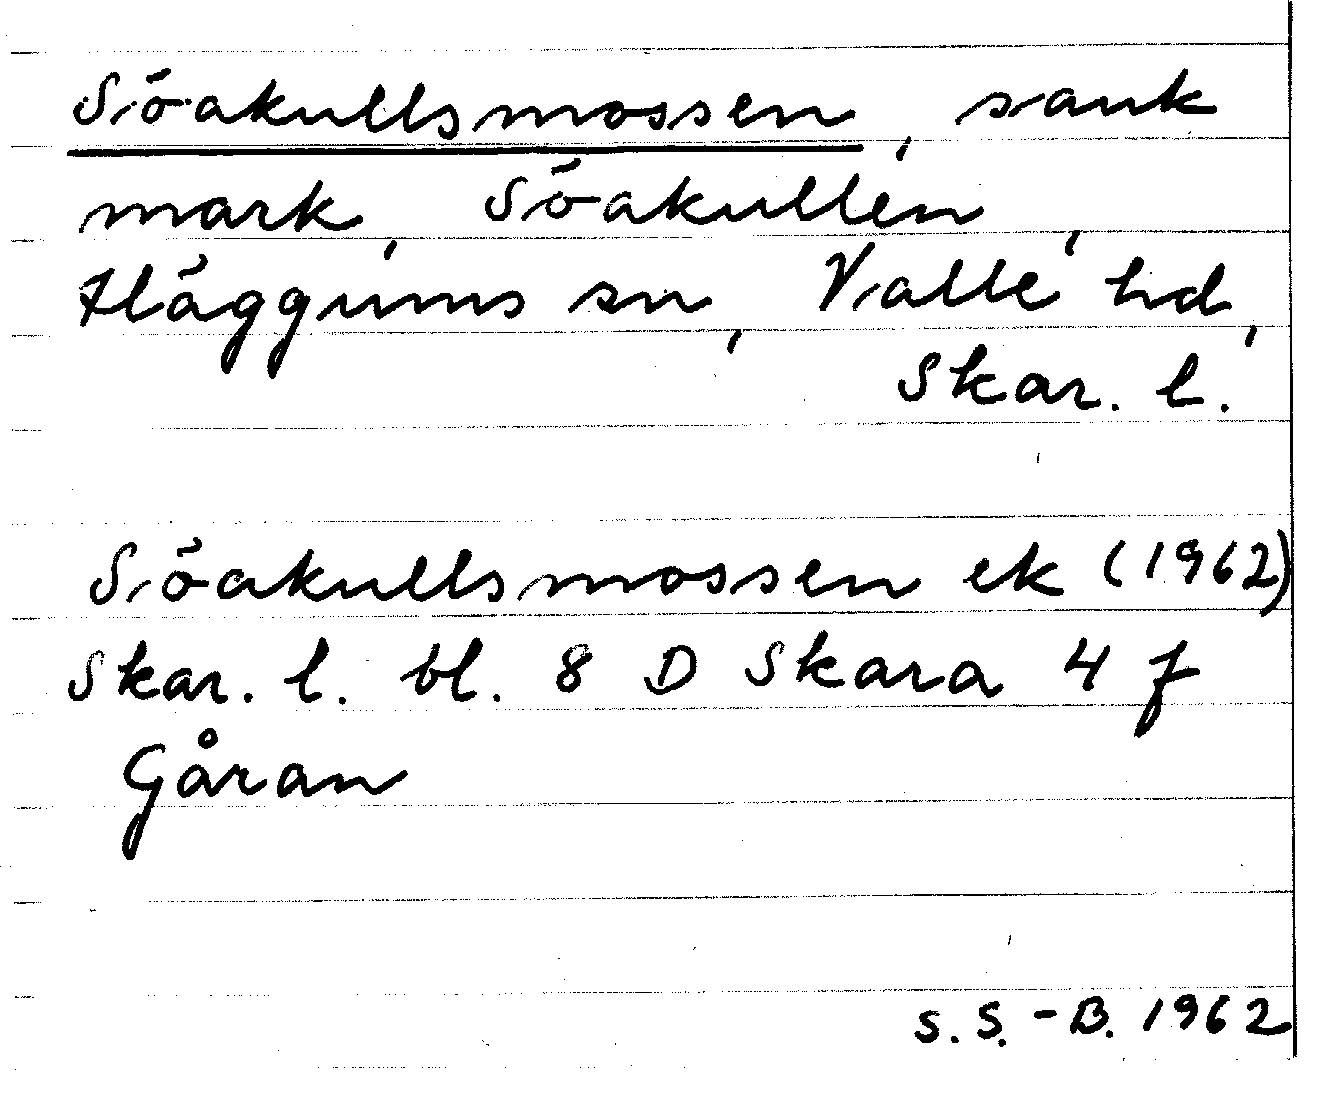 Söakullsmossen, sank
mark, Söakullen,
Häggums sn, Valle hd,
Skar. l.
Söakullsmossen ek (1962)
Skar. l. bl. 8 D Skara 4 f
Gåran
S. S.-B. 1962